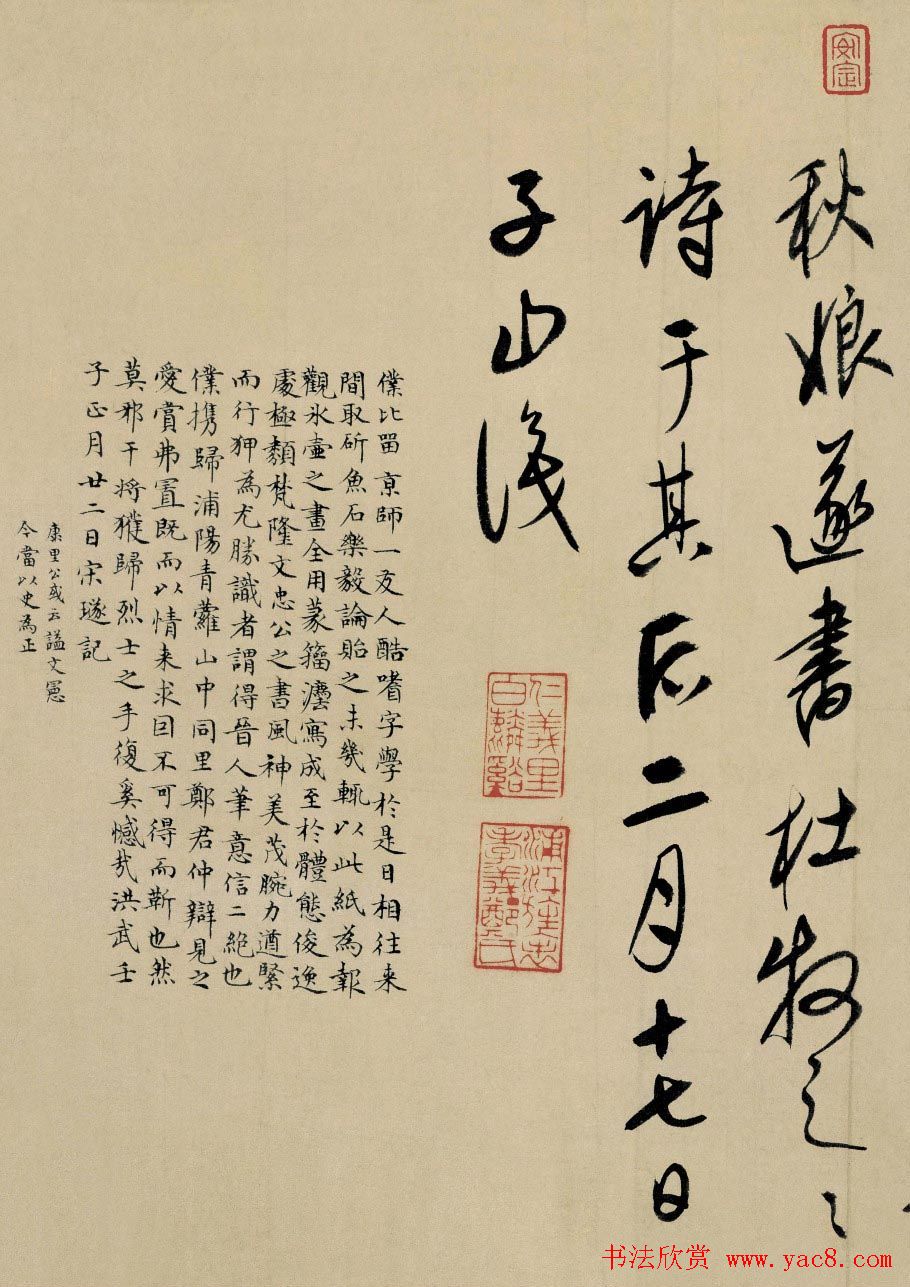 秋娘遂書杜牧之之
詩于其后二月十七日
子山識
安定
仁義里
百麟谿
浦江旌忠
孝義鄭氏
僕比留京師一友人酷嗜字學於是日相往来
間取斫魚石樂毅論貽之未幾輒以此紙為報
觀氷壺之畫全用篆籀瀍寫成至於體態俊逸
處極類梵隆文忠公之書風神美茂腕力遒緊
而行狎為尤勝識者謂得晉人筆意信二絶也
僕攜歸浦陽青蘿山中同里鄭君仲辯見之
愛賞弗置既而以情来求回不可得而靳也然
莫邪干将獲歸烈士之手復奚憾㦲洪武壬
子正月廿二日宋璲記
康里公或云謚文憲
今當以史為正
书法欣赏 www.yac8.com